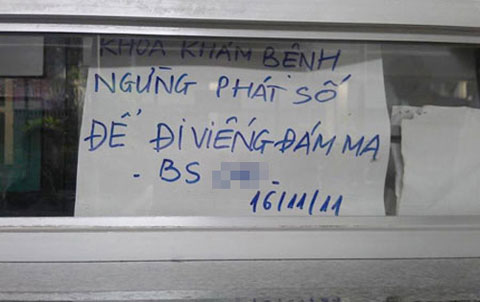 KHOA KHÁM BỆNH
NGỪNG PHÁT SỐ
ĐỂ ĐI VIẾNG ĐÁM MA
. BS .
16/11/11